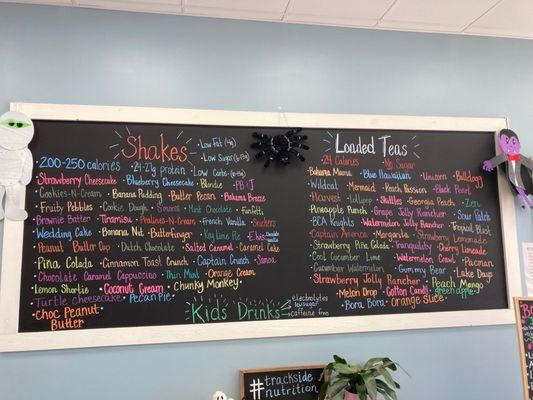 Shakes
•Low Fat (4g)
•Low Sugar (6g)
•Low Carbs
200-250 calories •24-27g protein
Strawberry Cheesecake •Blueberry Cheesecake •Blondie •PB+J
Cookies-N-Cream •Banana Pudding •Butter Pecan •Bahama Breeze
•Fruity Pebbles •Cookie Dough •S'mores •Mint Chocolate •Funfetti
Brownie Batter •Tiramisu •Pralines-N-Cream •French Vanilla •Snickers
•Wedding Cake •Banana Nut •Butterfinger •Key Lime Pie
•Peanut Butter Cup •Dutch Chocolate •Salted Caramel •Caramel Cake
Piña Colada •Cinnamon Toast Crunch •Captain Crunch •Samoa
•Chocolate Caramel Cappuccino •Thin Mint •Orange Cream
•Lemon Shortie •Coconut Cream •Chunky Monkey
•Turtle Cheesecake •Pecan Pie
Choc Peanut
Butter
Kids Drinks
electrolytes
low sugar
caffeine free
Loaded Teas
•24 Calories •No Sugar
Bahama Mama •Blue Hawaiian •Unicorn •Bulldog
Wildcat •Mermaid •Peach Passion •Black Pearl
•Harvest •Lollipop •Skittles •Georgia Peach •Zen
Pineapple Punch •Grape Jolly Rancher •Sour Patch
•BCA Knights •Watermelon Jolly Rancher •Tropical Blast
Captain America •Margarita •Strawberry Lemonade
Strawberry Piña Colada •Tranquility •Cherry Limeade
•Cool Cucumber Lime •Watermelon Crawl •Pacman
•Cucumber Watermelon •Gummy Bear •Lake Days
•Strawberry Jolly Rancher •Peach Mango
•Melon Drop •Cotton Candy •green apple
•Bora Bora •Orange Slice
#trackside
nutrition